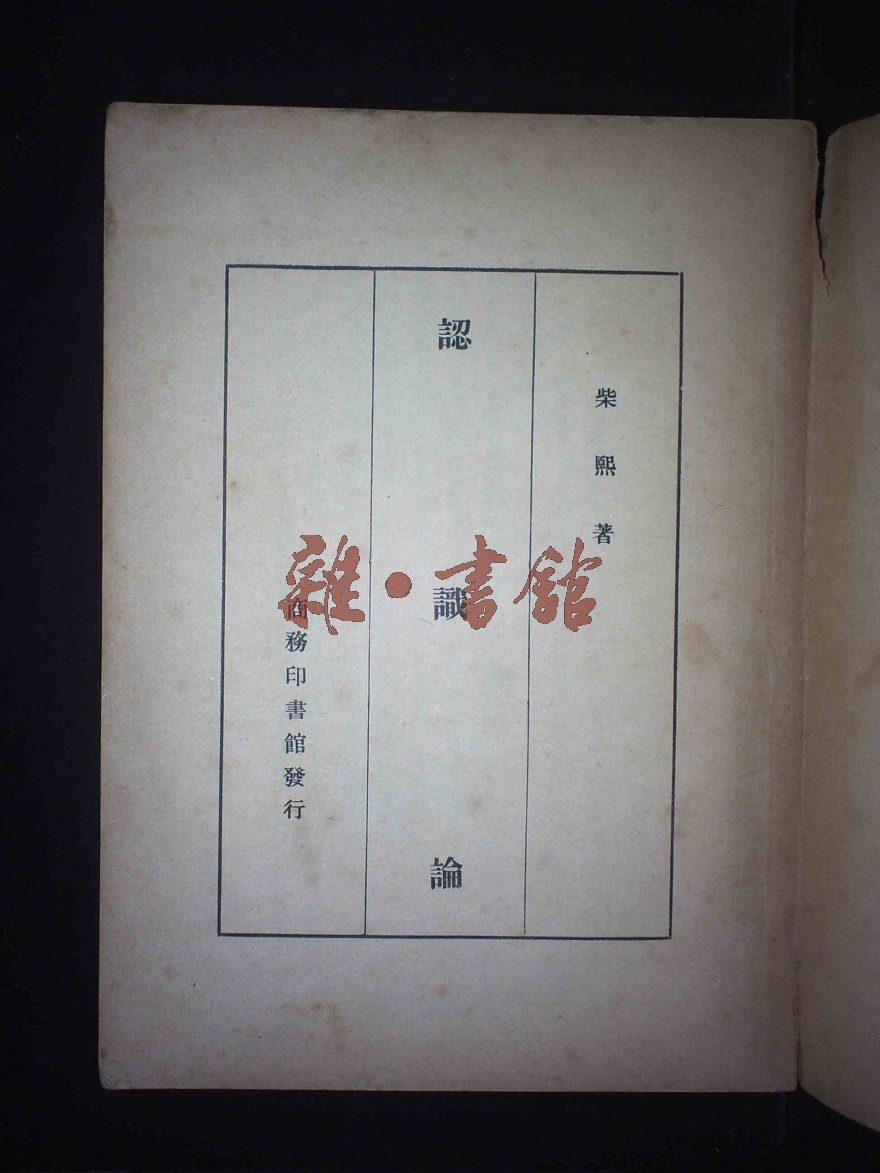 柴熙著
認識論
商務印書館發行
雜·書館